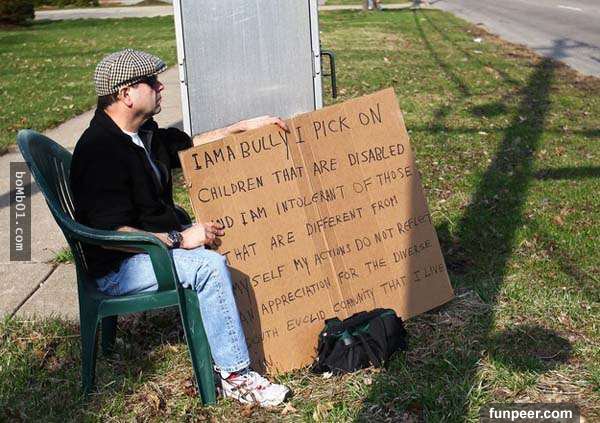 I AM A BULLY I PICK ON
CHILDREN THAT ARE DISABLED
ND I AM INTOLERANT OF THOSE
THAT ARE DIFFERENT FROM
MYSELF MY ACTIONS DO NOT REFLECT
AN APPRECIATION FOR THE DIVERSE
SOUTH EUCLID COMMUNITY THAT I LIVE
bomb01.com
funpeer.com